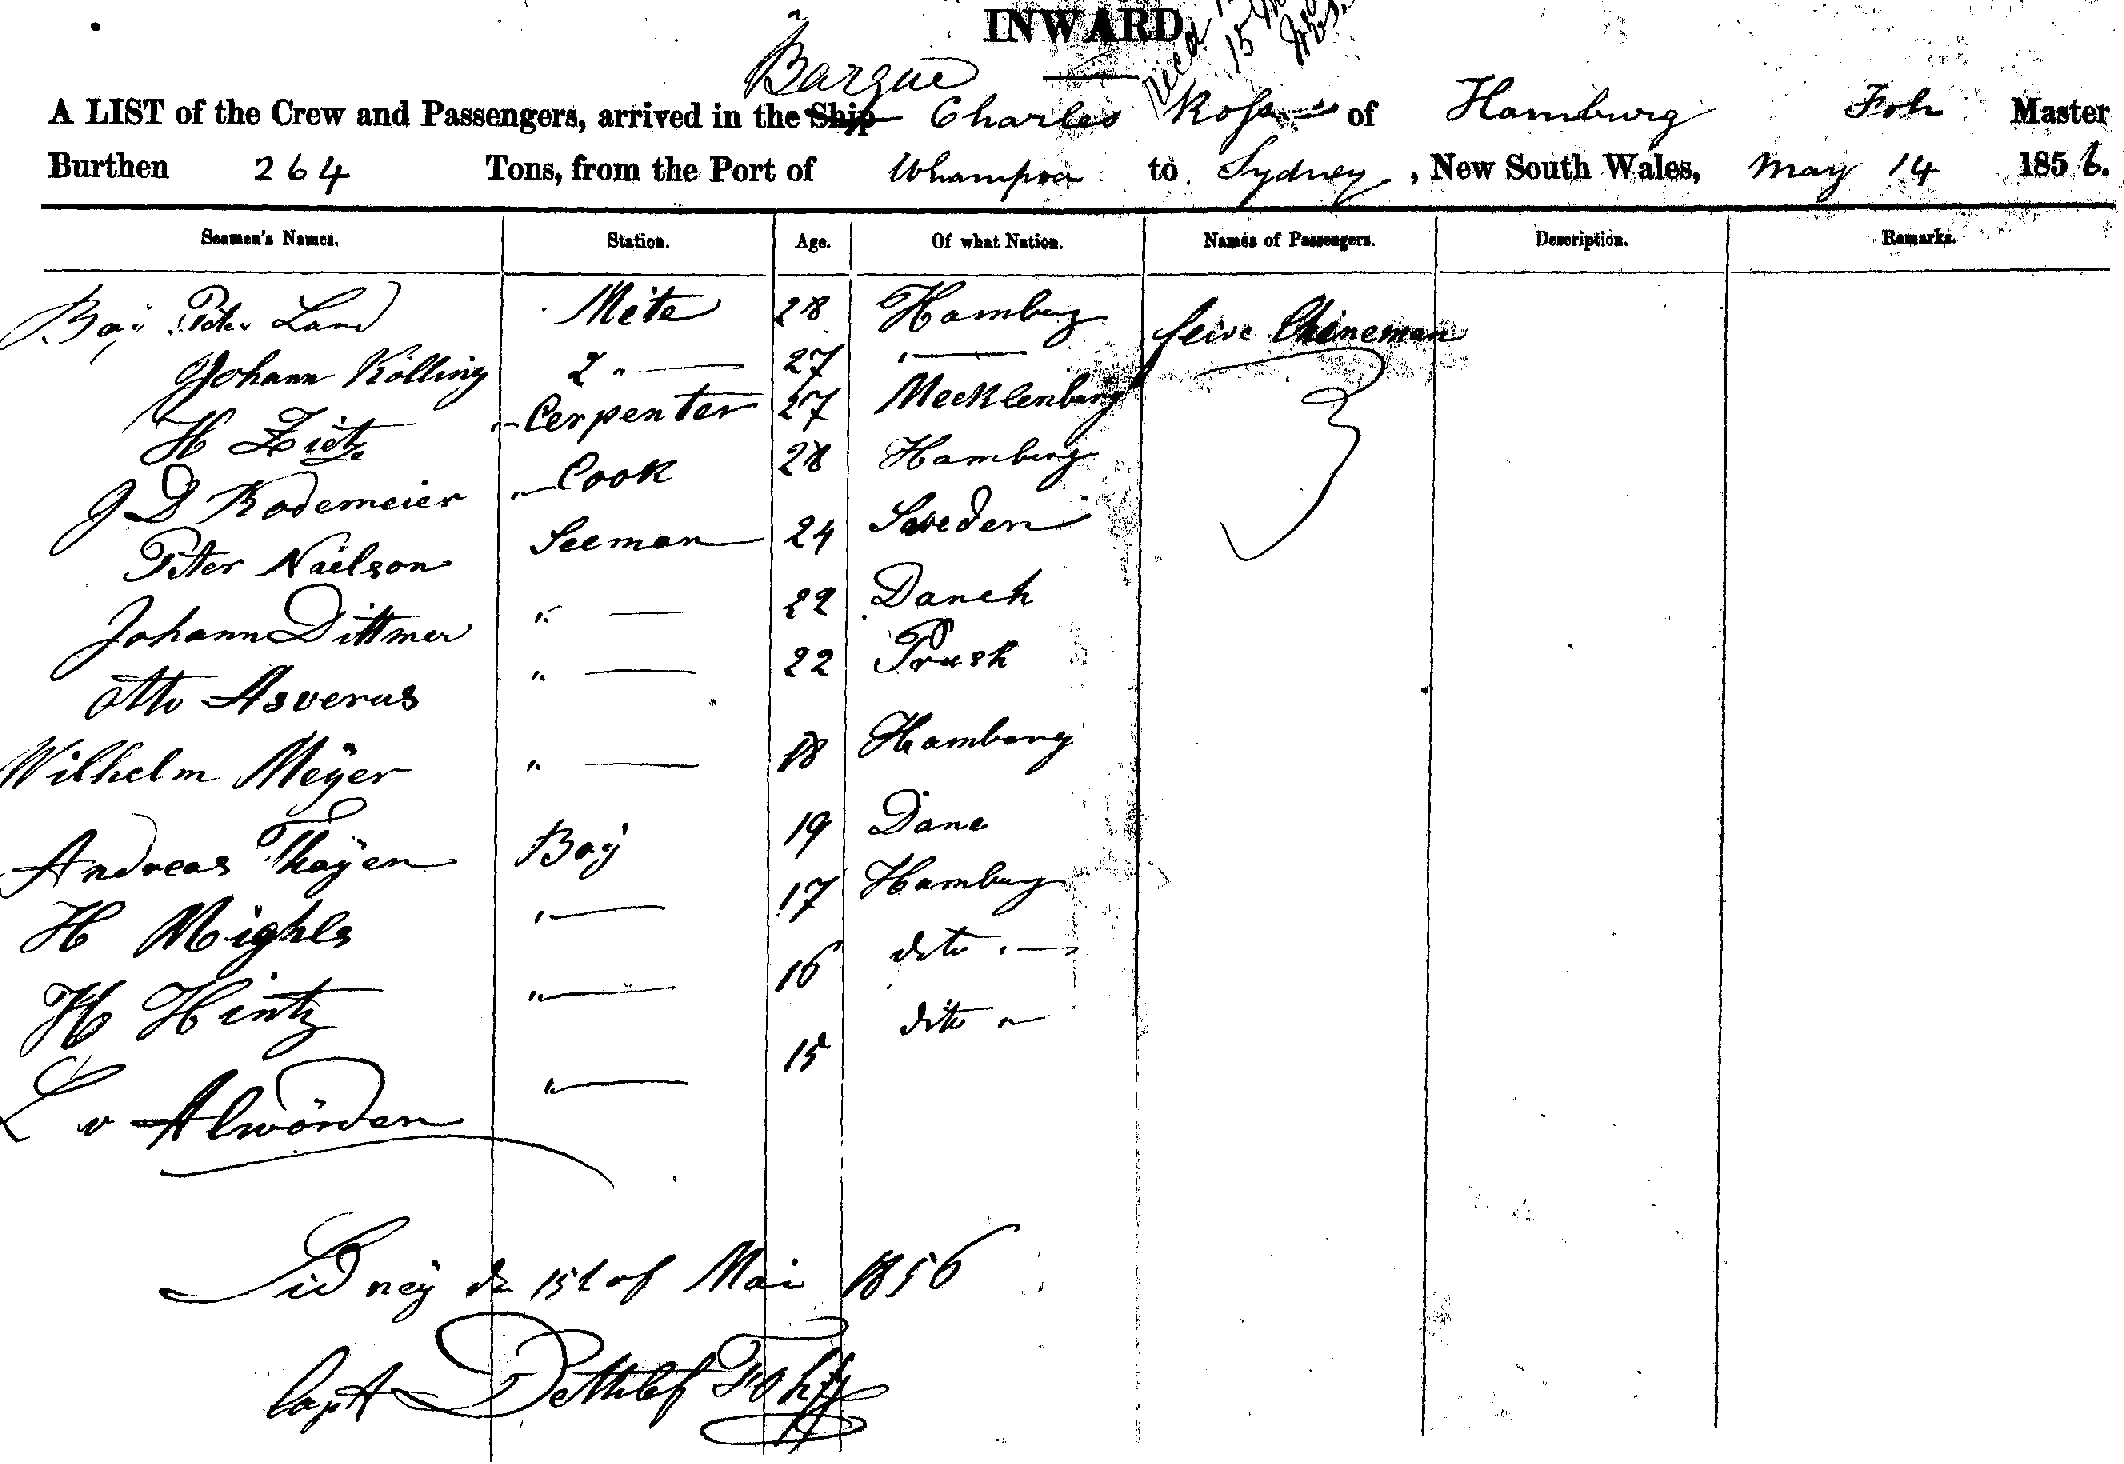 INWARD
Barque
A LIST of the Crew and Passengers, arrived in the Ship Charles Ross of Hamburg Foh Master
Burthen 264 Tons, from the Port of Whampoa to Sydney, New South Wales, May 14 1856.
Seamen's Names. Station. Age. Of what Nation. Names of Passengers. Description. Remarks.
Boy Peter Land Mete 28 Hamburg feive Chineman
Johann Kölling 2 " — 27 " —
H Zietz Cerpenter 27 Mecklenburg
J D Rodemeier Cook 28 Hamburg
Peter Nielson Seeman 24 Sweden
Johann Dittmer " — 22 Danch
Otto Asverus " — 22 Prush
Wilhelm Meÿer " — 18 Hamburg
Andreas Thaÿen Boÿ 19 Dane
H Mighls " — 17 Hamburg
H Hintz " — 16 dito " —
L v Alwörden " — 15 dito " —
Sidneÿ de 15t of Mai 1856
Capt Dethlef Fohh